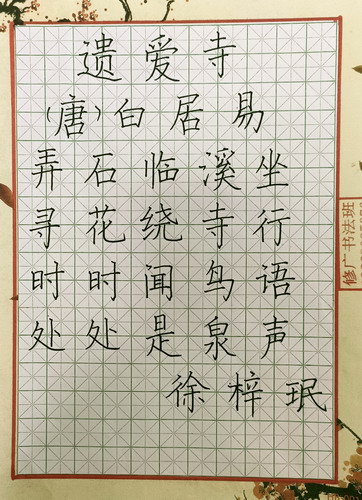 遗爱寺
(唐)白居易
弄石临溪坐
寻花绕寺行
时时闻鸟语
处处是泉声
徐梓珉
修广书法班